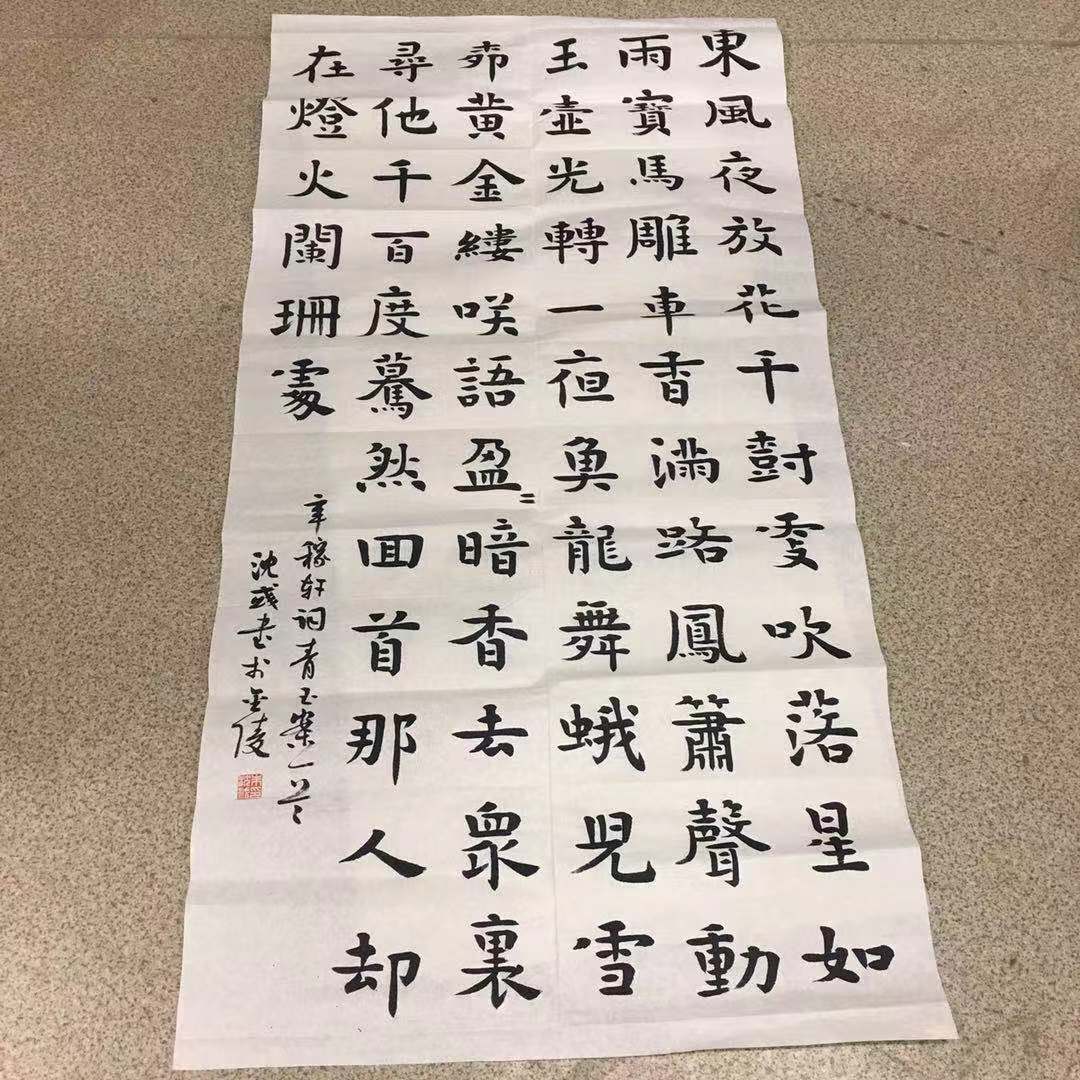 東風夜放花千尌更吹落星如
雨寶馬雕車香滿路鳳簫聲動
玉壺光轉一夜魚龍舞蛾兒雪
柳黃金縷咲語盈〻暗香去眾裏
尋他千百度驀然回首那人却
在燈火闌珊處
辛稼轩词青玉案一首
沈彧书於金陵